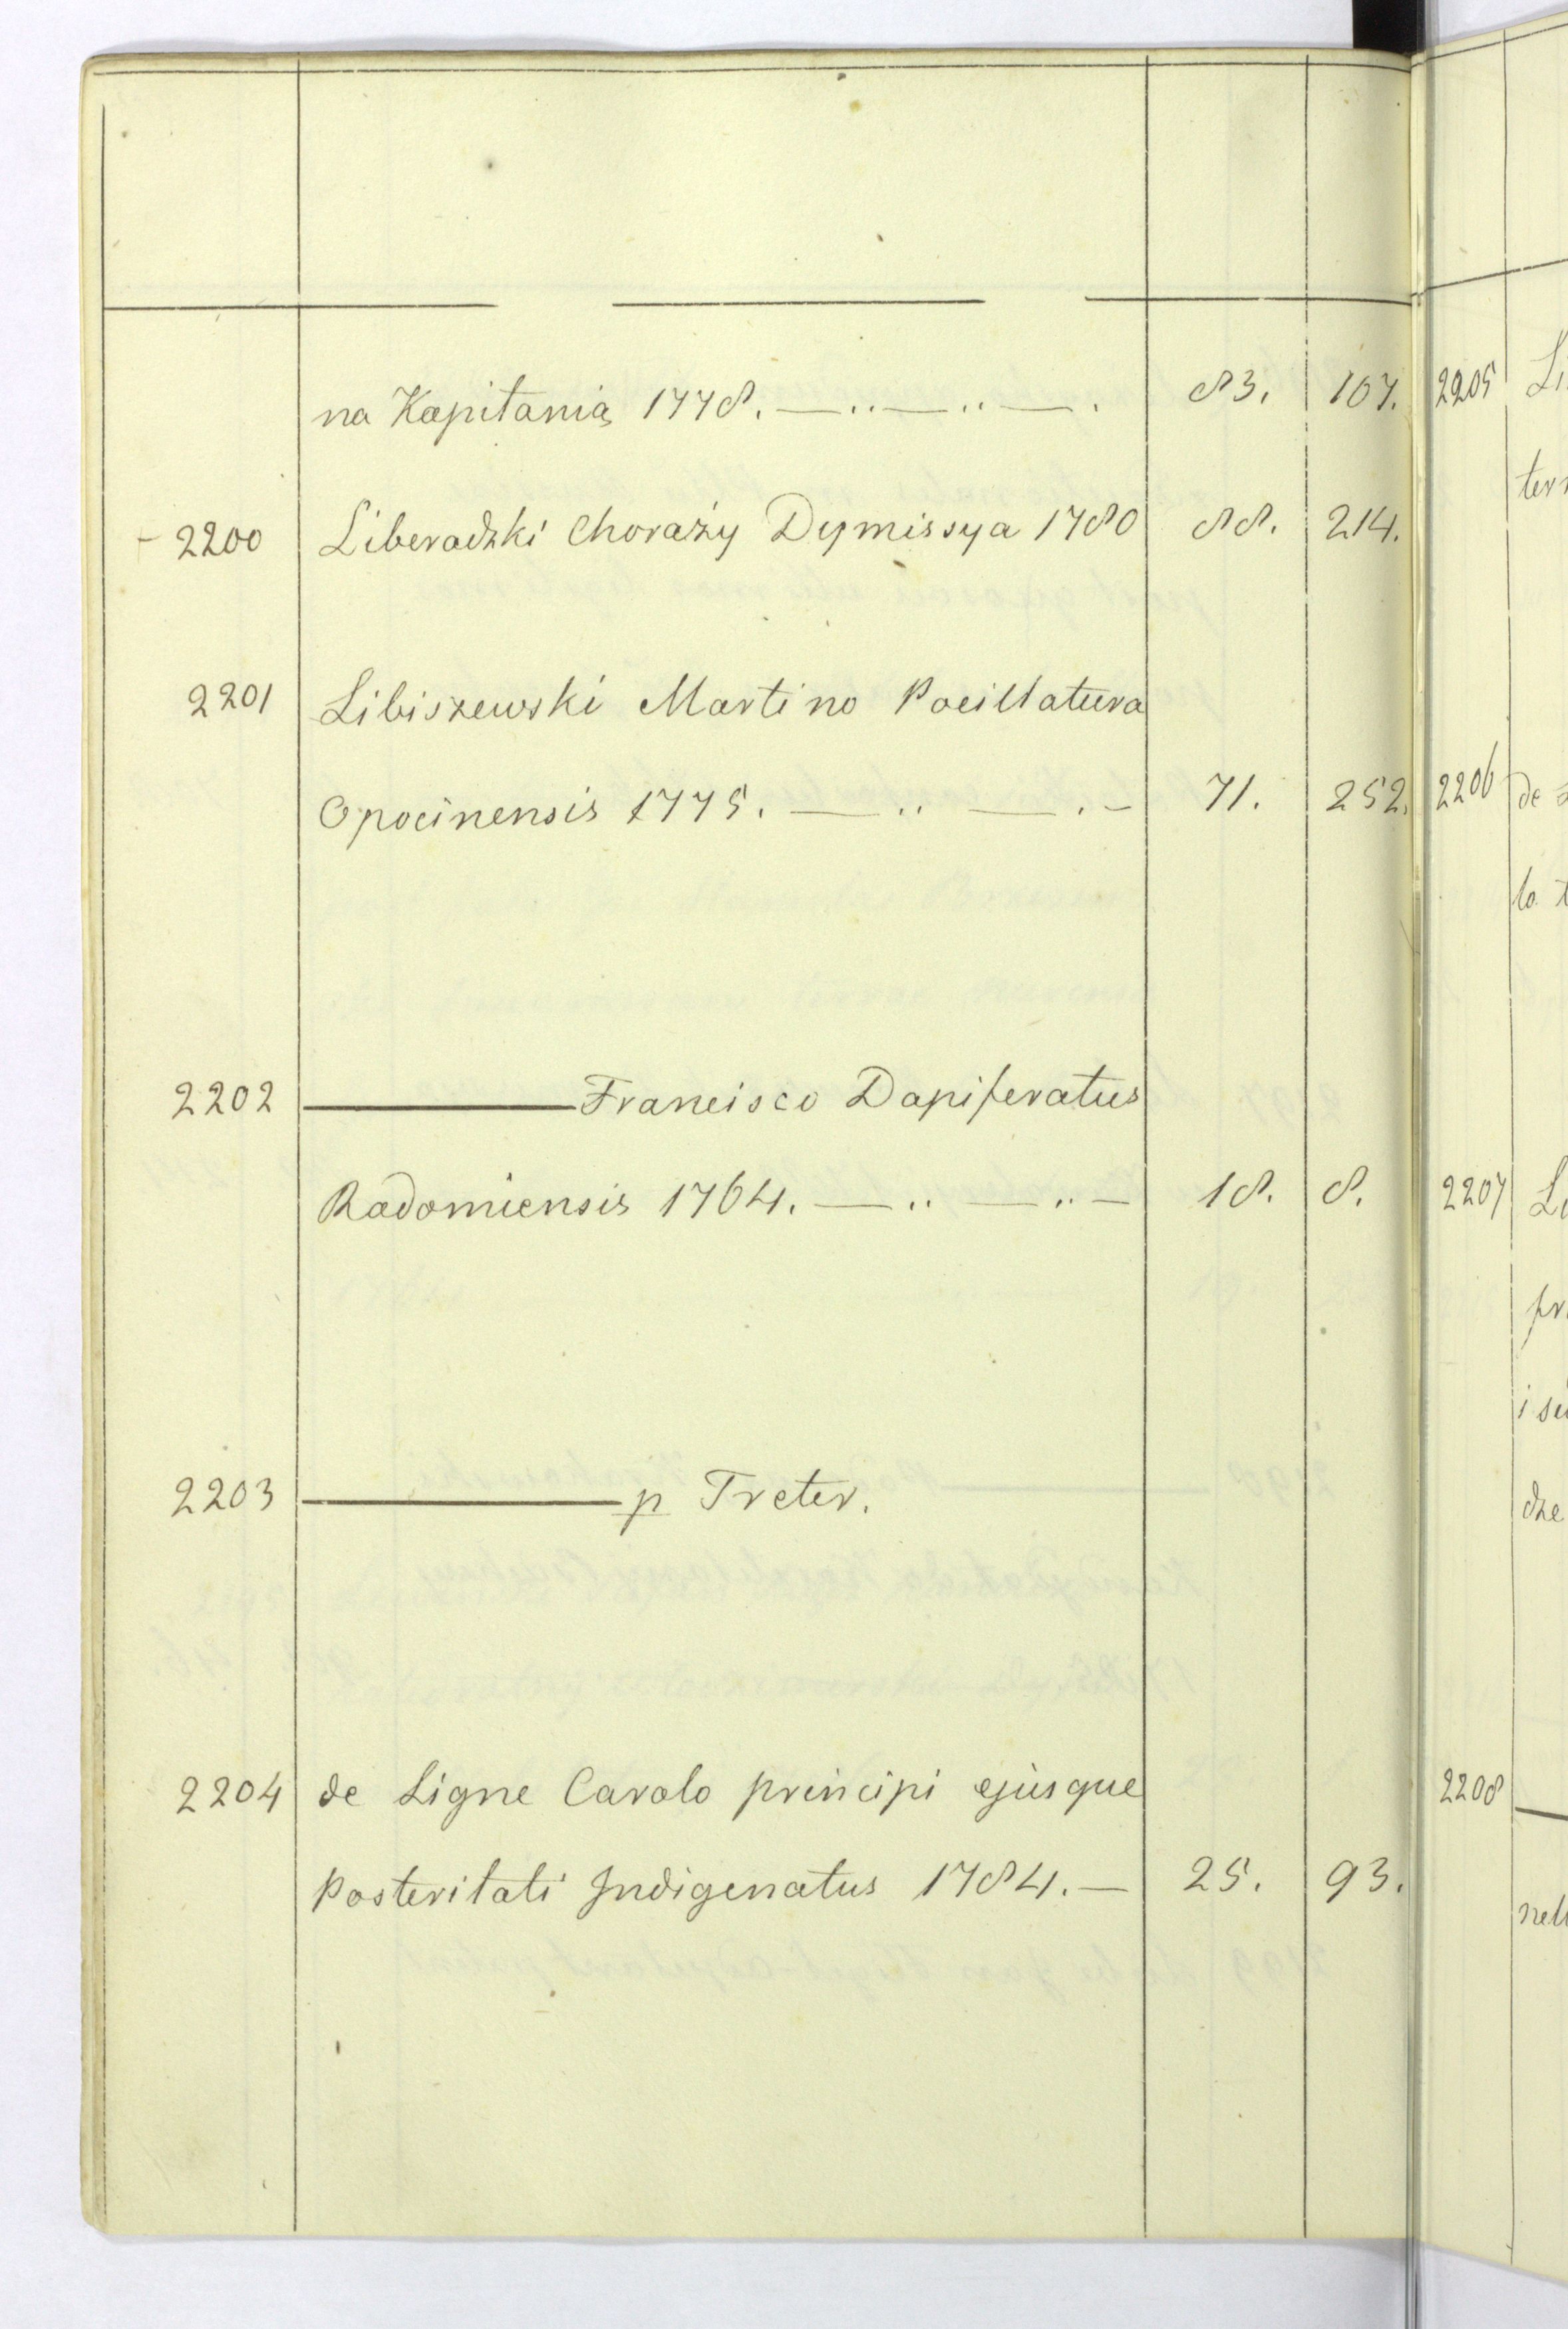 na Kapitanią 1778. — .. — .. — . 83. 107.
- 2200 Liberadzki Chorąży Dymissya 1780 88. 214.
2201 Libiszewski Martino Pocillatura
Opocinensis 1775. — .. — . - 71. 252.
2202 ——— Francisco Dapiferatus
Radomiensis 1764. — .. — .. — 18. 8.
2203 ——— p Treter.
2204 de Ligne Carolo principi ejusque
Posteritati Indigenatus 1784. — 25. 93.
2205 Li
ter
2206 de
la t
2207 Li
pr
i
dze
2208 —
nell